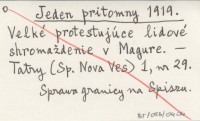 Jeden prítomny 1919.
Veľké protestujúce lidové
shromaždenie v Magure. –
Tatry (Sp. Nova Ves) 1, nr 29.
Sprawa granicy na Spiszu.